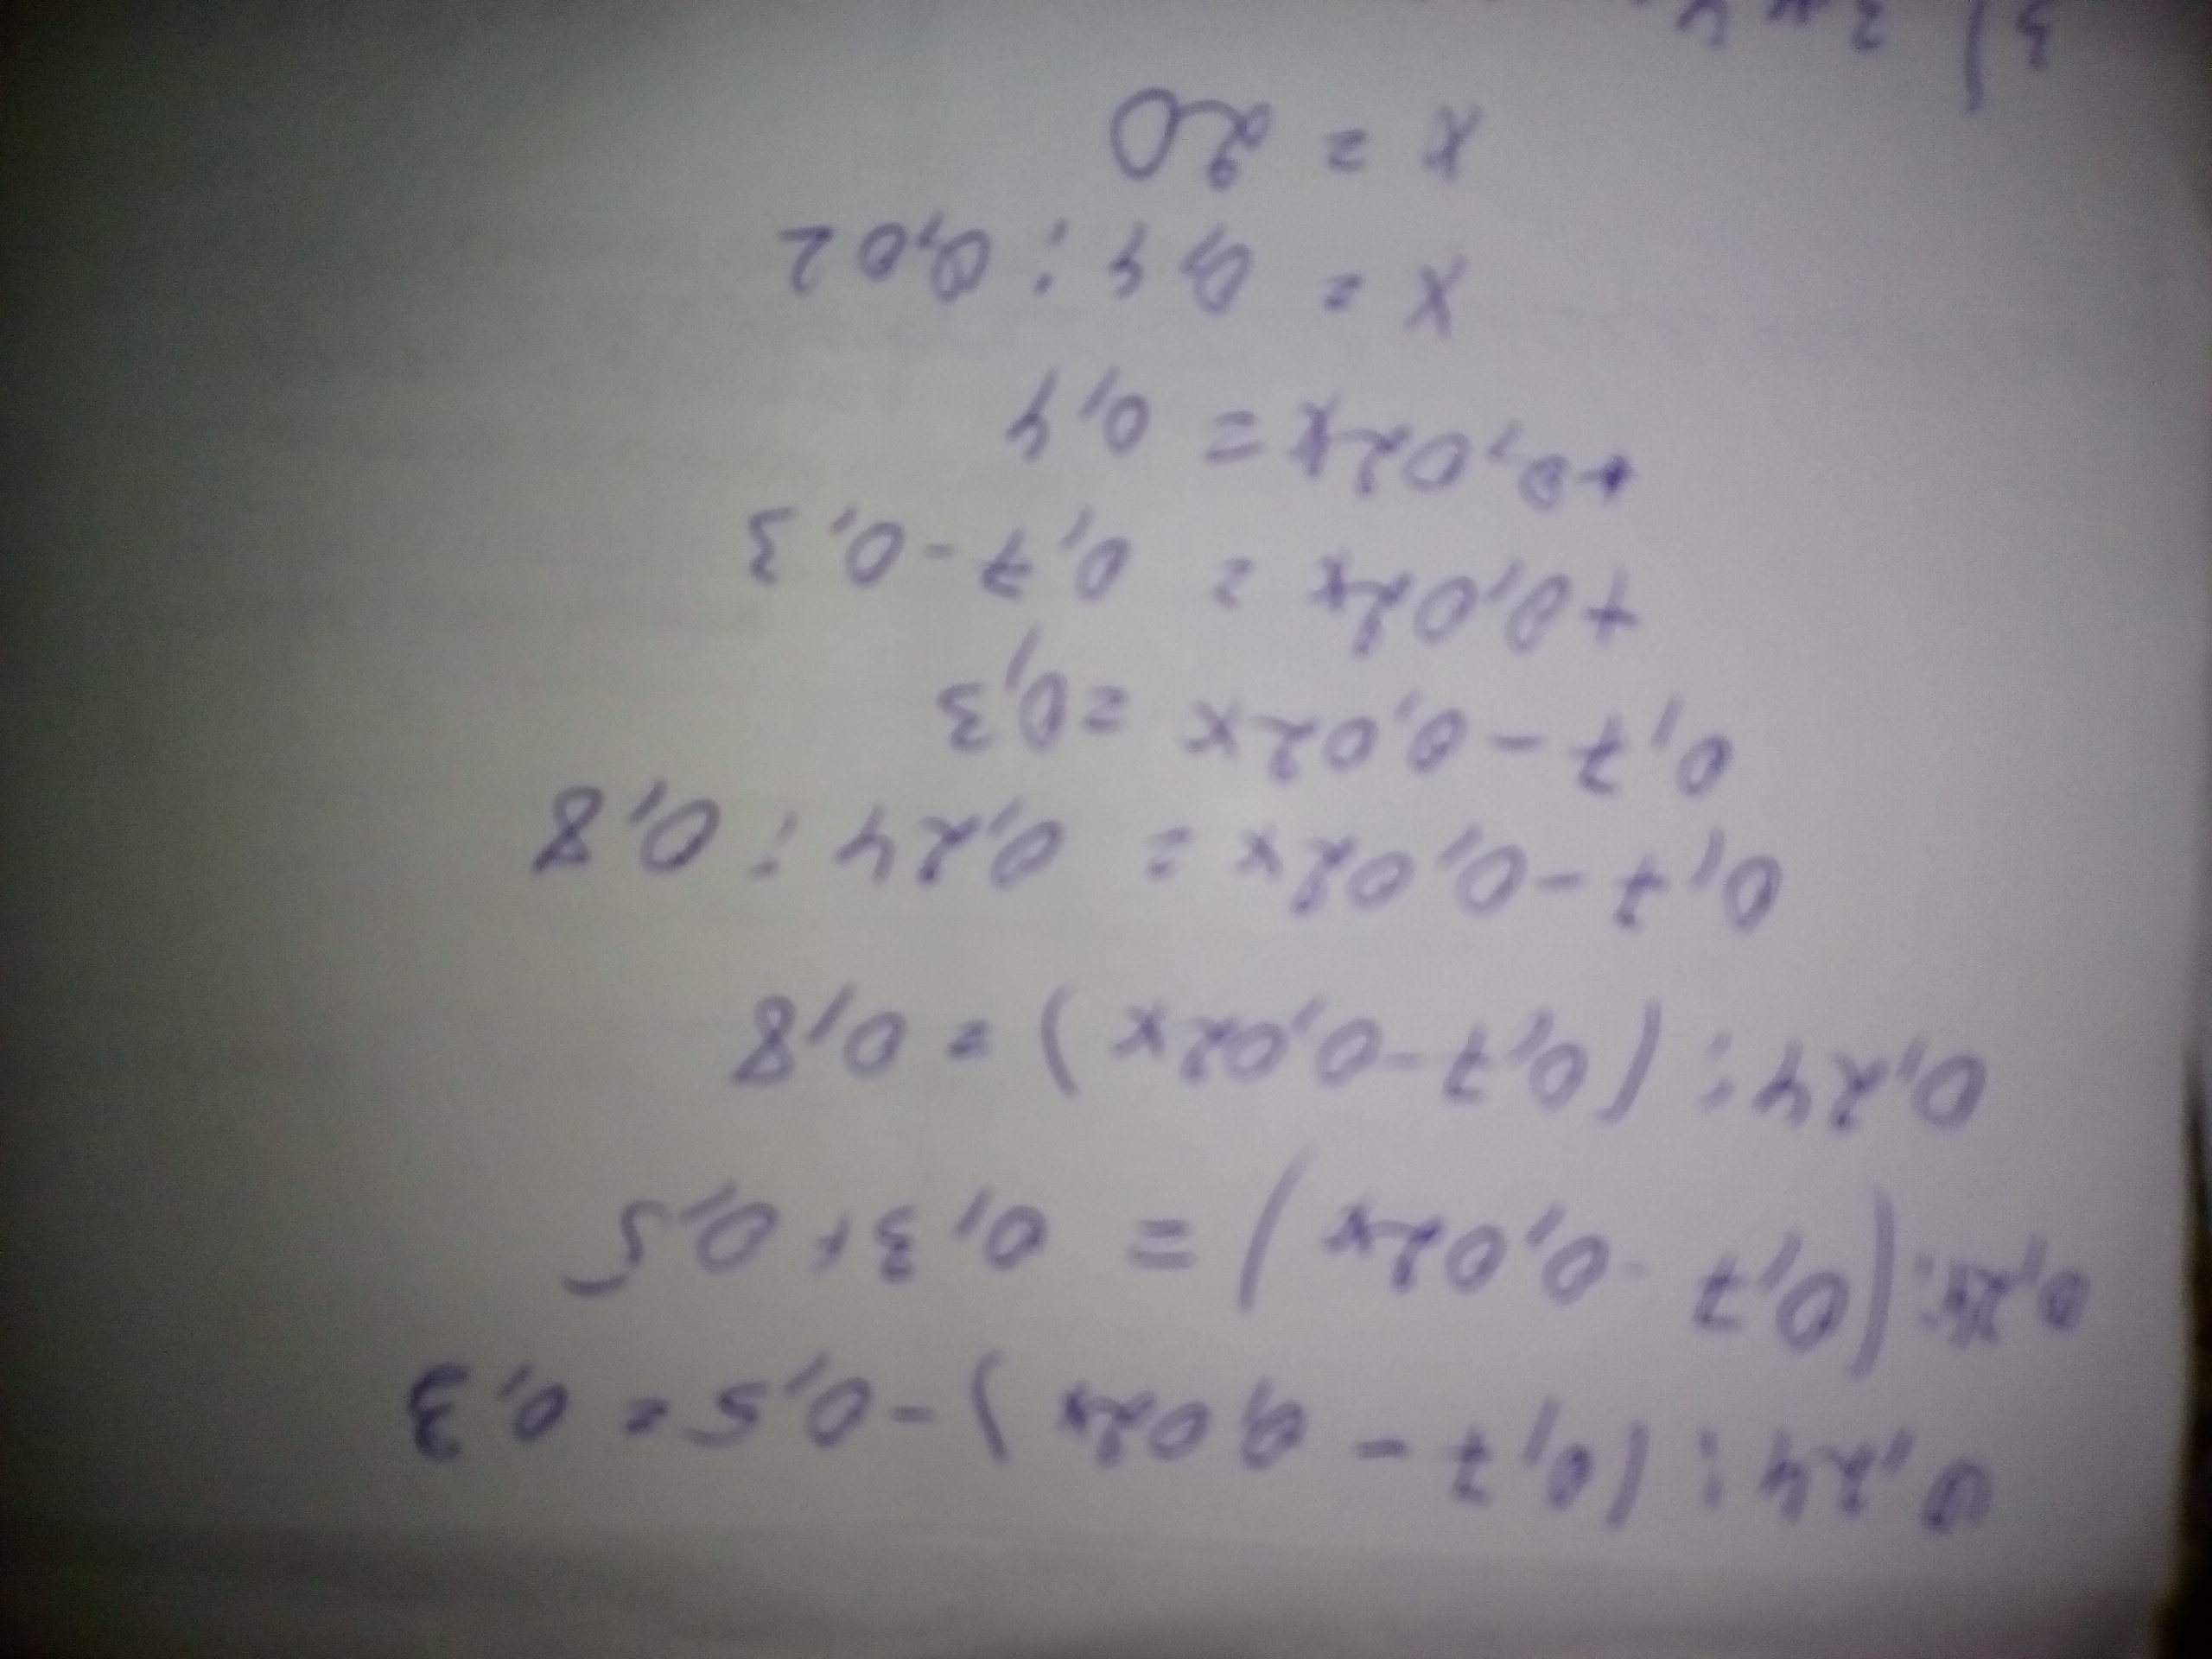 0,24 : (0,7 - 0,02x) - 0,5 = 0,3
0,24 : (0,7 - 0,02x) = 0,3 + 0,5
0,24 : (0,7 - 0,02x) = 0,8
0,7 - 0,02x = 0,24 : 0,8
0,7 - 0,02x = 0,3
+0,02x = 0,7 - 0,3
+0,02x = 0,4
x = 0,4 : 0,02
x = 20